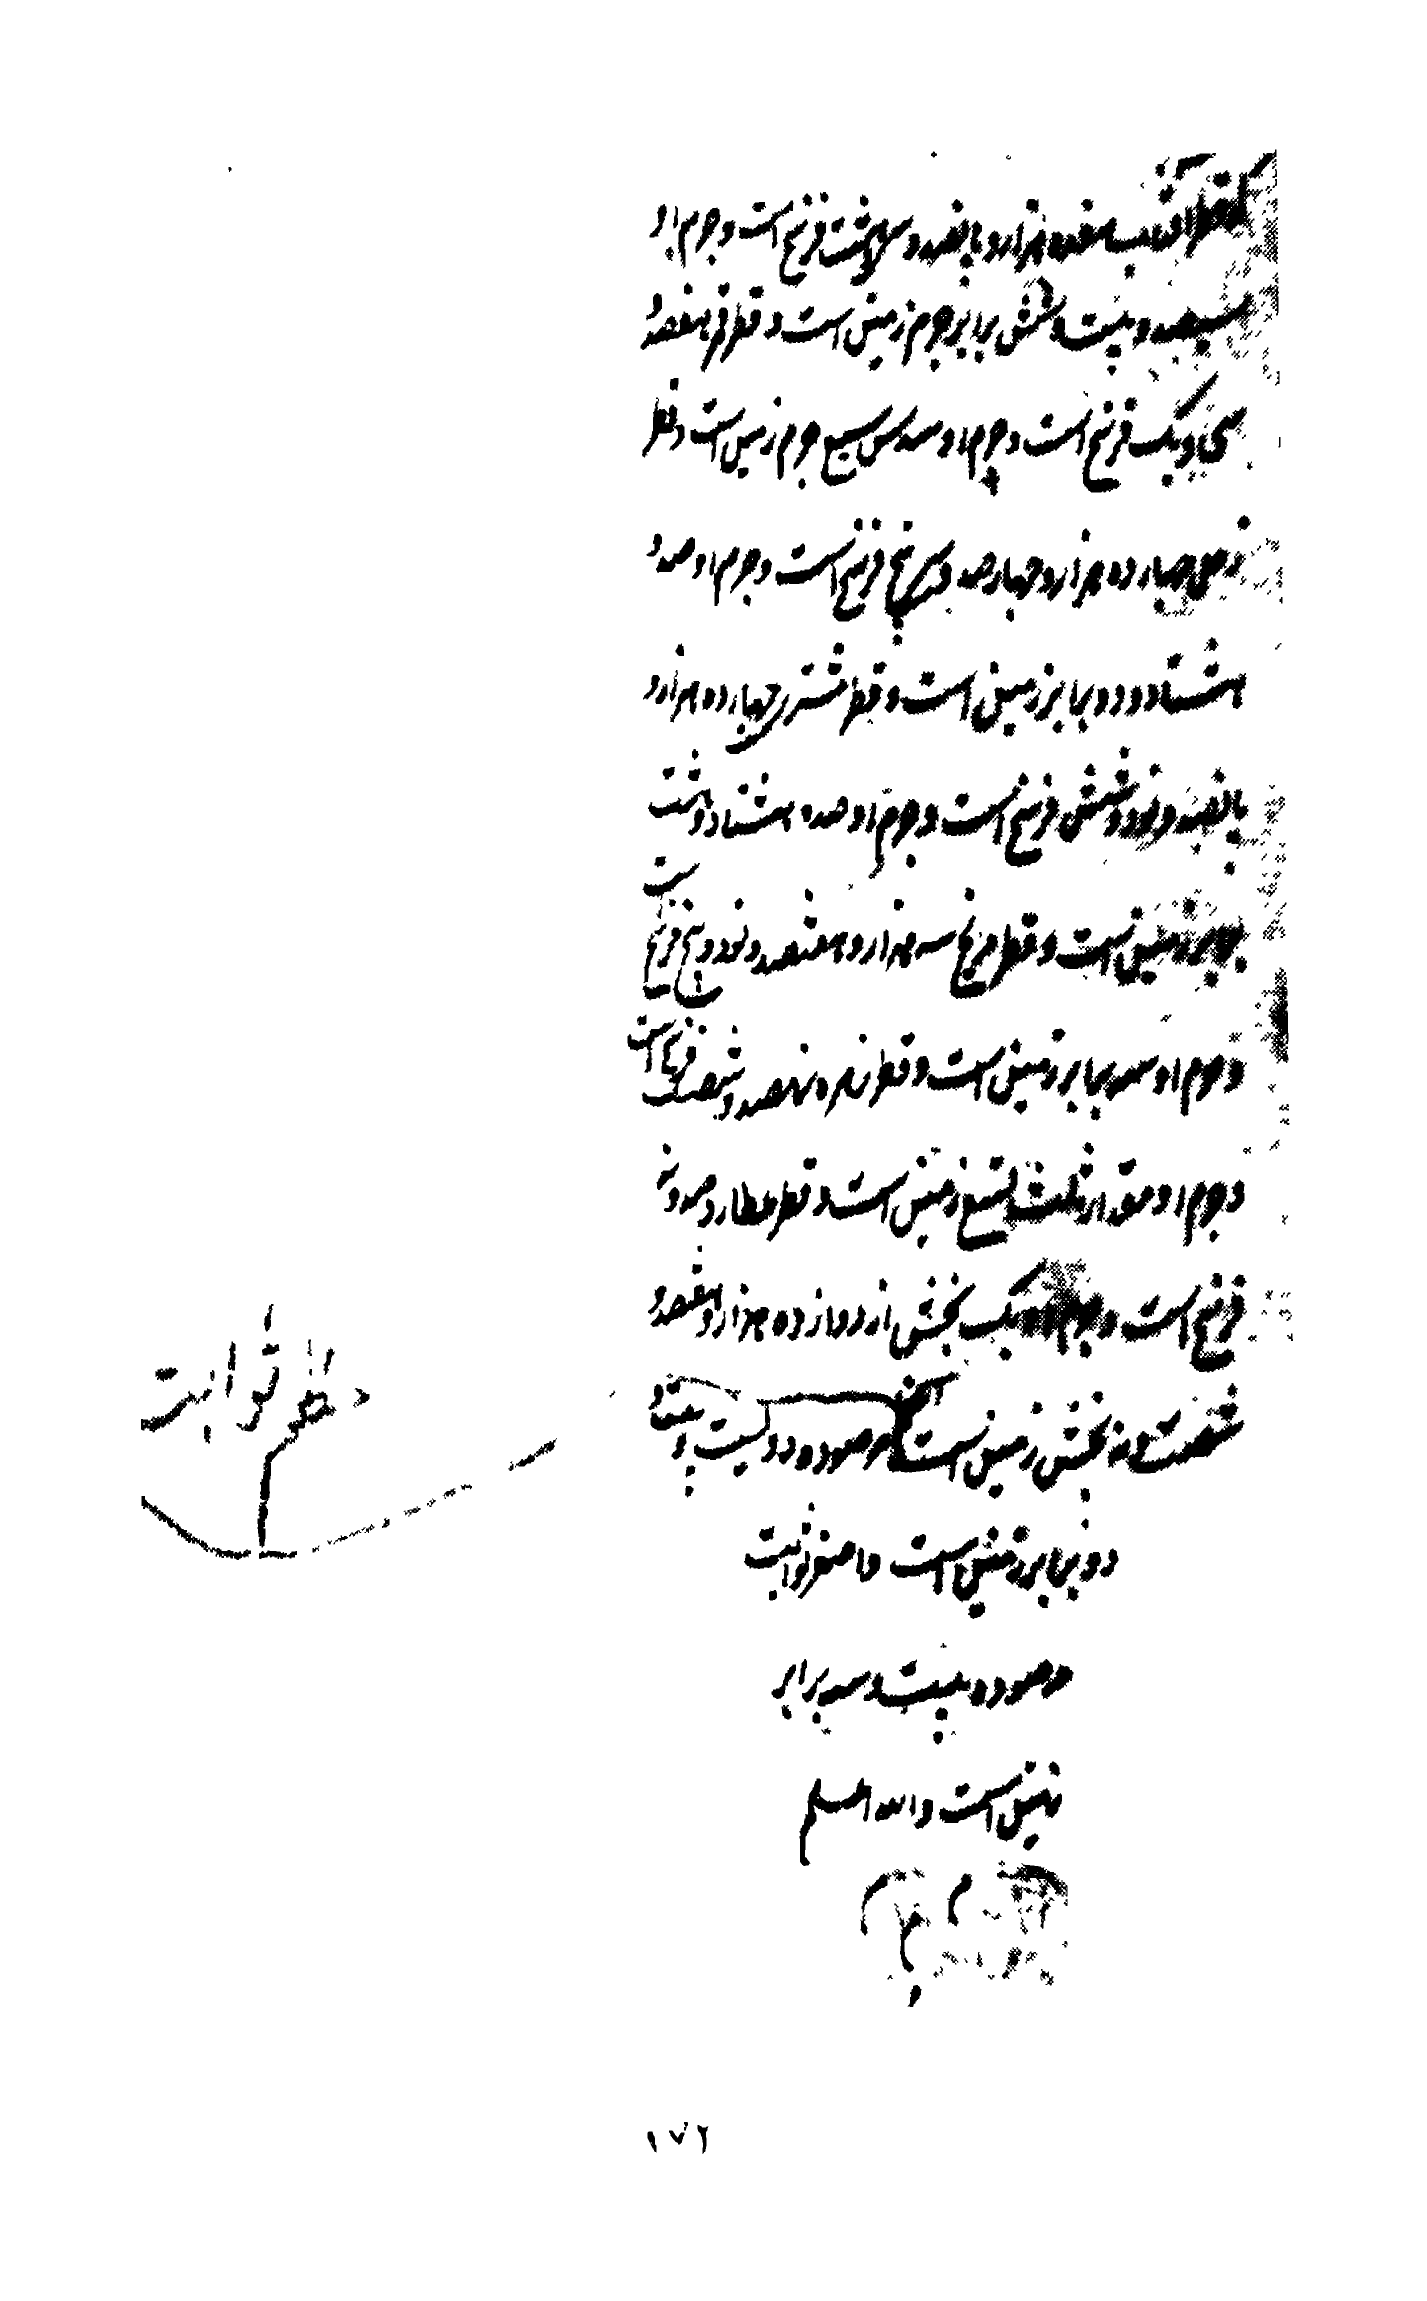 که قطر آفتاب هفده هزار و پانصد و سی هشت فرسخ است و جرم او
سیصد و بیست و شش برابر جرم زمین است و قطر قمر هفتصد و
سی و یک فرسخ است و جرم او سدس سبع جرم زمین است و قطر
زحل چهارده هزار و چهارصد و سی پنج فرسخ است و جرم او صد و
هشتاد و دو برابر زمین است و قطر مشتری چهارده هزار و
پانصد و نود و شش فرسخ است و جرم او صد و هشتاد و هشت
برابر زمین است و قطر مریخ سه هزار و هفتصد و نود و پنج فرسخ است
و جرم او سه برابر زمین است و قطر زهره نهصد و شصت فرسخ است
و جرم او مقدار ثلث تسع زمین است و قطر عطارد صد و نه
فرسخ است و جرم او یک بخش از دوازده هزار و هفتصد و
شصت و نه بخش زمین است مرصوده دویست و هفتاد و
دو برابر زمین است و اصغر ثوابت
مرصوده بیست و سه برابر
زمین است والله اعلم
قطر ثوابت
۱۷۲